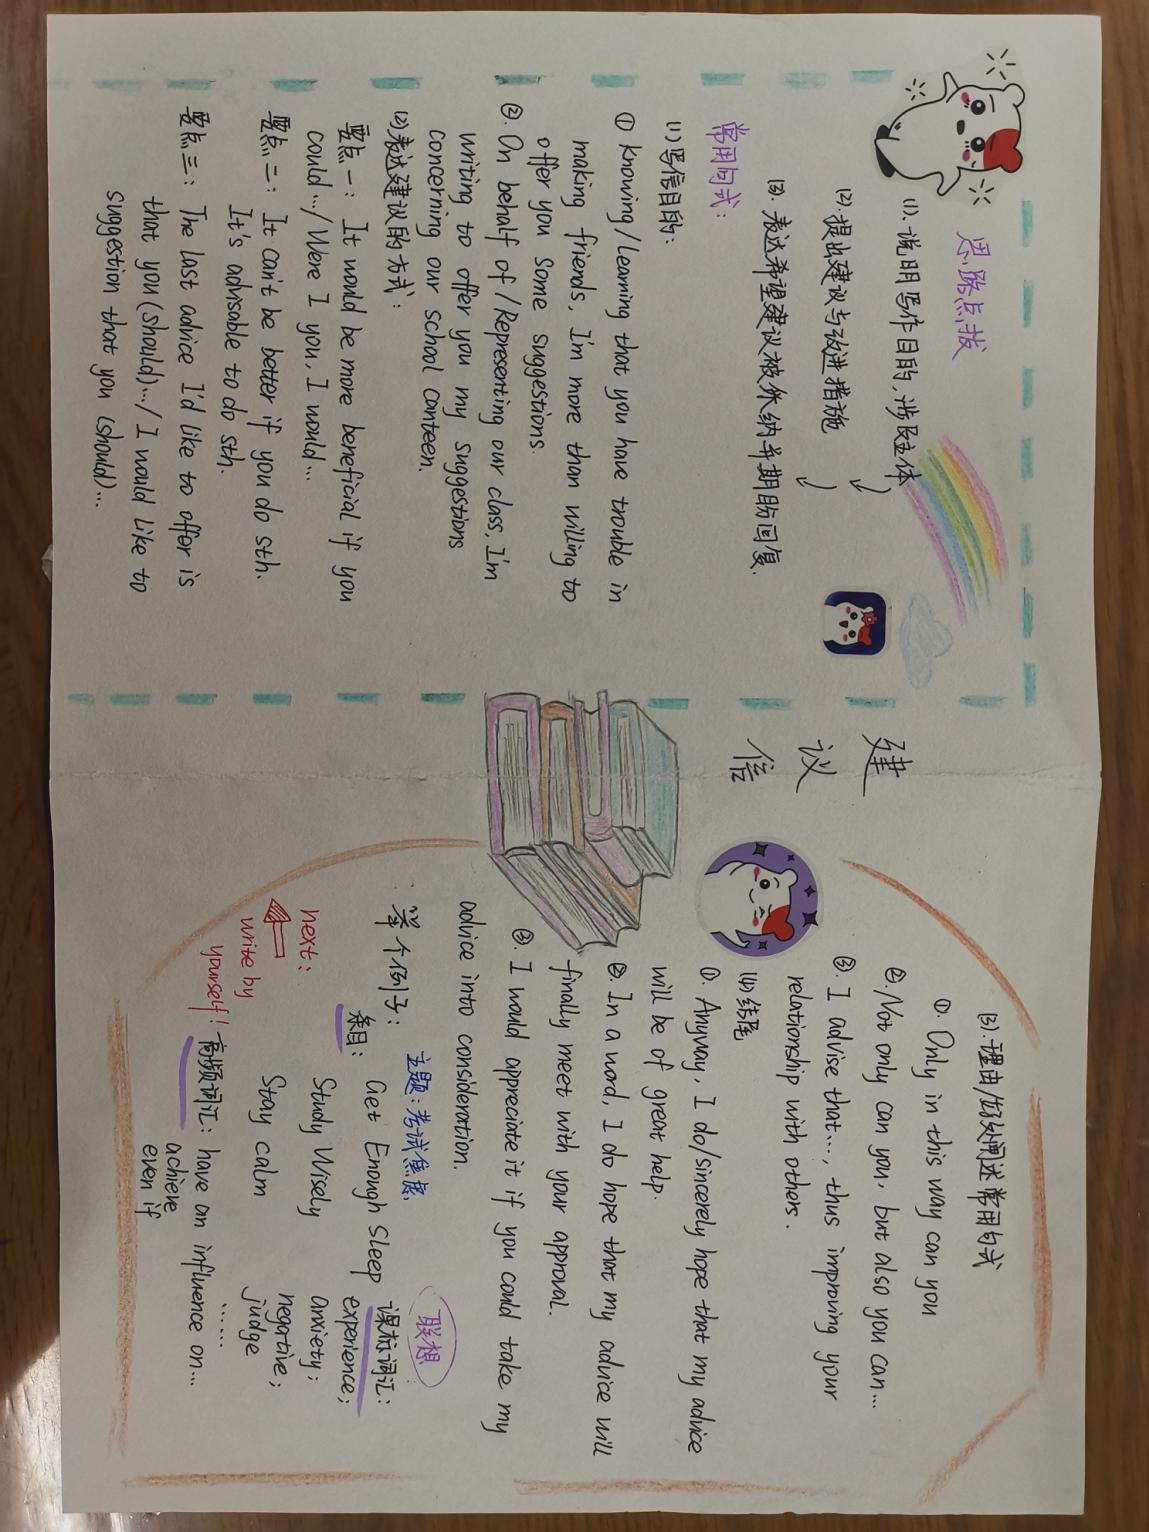 建议信
思路点拨
(1).说明写作目的,涉及主体
(2).提出建议与改进措施
(3).表达希望建议被采纳并期盼回复.
常用句式:
(1)写信目的:
① Knowing/Learning that you have trouble in
making friends, I'm more than willing to
offer you some suggestions.
②. On behalf of/Representing our class, I'm
writing to offer you my suggestions
concerning our school canteen.
(2)表达建议的方式:
要点一: It would be more beneficial if you
could.../Were I you, I would...
要点二: It can't be better if you do sth.
It's advisable to do sth.
要点三: The last advice I'd like to offer is
that you (should).../I would like to
suggestion that you (should)...
(3).理由/好处阐述常用句式
①. Only in this way can you
②. Not only can you, but also you can...
③. I advise that..., thus improving your
relationship with others.
(4)结尾
①. Anyway, I do/sincerely hope that my advice
will be of great help.
②. In a word, I do hope that my advice will
finally meet with your approval.
③. I would appreciate it if you could take my
advice into consideration.
举个例子:
主题:考试焦虑
条目: Get Enough Sleep
Study Wisely
Stay calm
联想:
课标词汇:
experience;
anxiety;
negative;
judge
......
高频词汇: have an influence on...
achieve
even if
next:
write by
yourself!